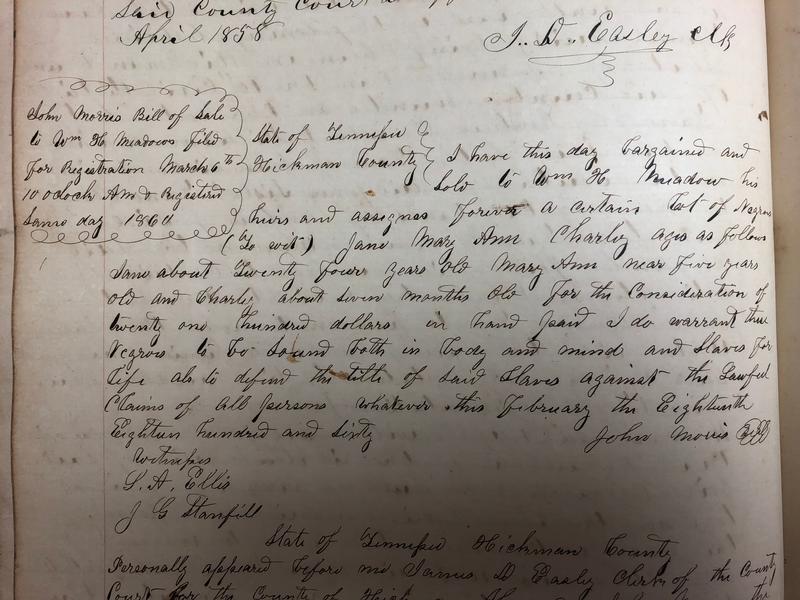 Said County Court
April 1858
J. D. Easley Clk
John Morris Bill of Sale
to Wm H Meadows filed
for Registration March 6th
10 oclock AM & Registered
Same day 1860
State of Tennessee
Hickman County
I have this day bargained and
Sold to Wm H Meadow his
heirs and assignes forever a certain Lot of Negroes
(To wit) Jane Mary Ann Charley ages as follows
Jane about Twenty four years old Mary Ann near five years
old and Charley about seven months old for the Consideration of
twenty one hundred dollars in hand paid I do warrant these
Negroes to be sound both in body and mind and Slaves for
life als to defend the title of said Slaves against the Lawful
Claims of all persons whatever this February the Eighteenth
Eighteen hundred and Sixty
John Morris Seal
witness
S. A. Ellis
J G Stanfill
State of Tennessee Hickman County
Personally appeared before me James D Easley Clerk of the County
Court for the County of